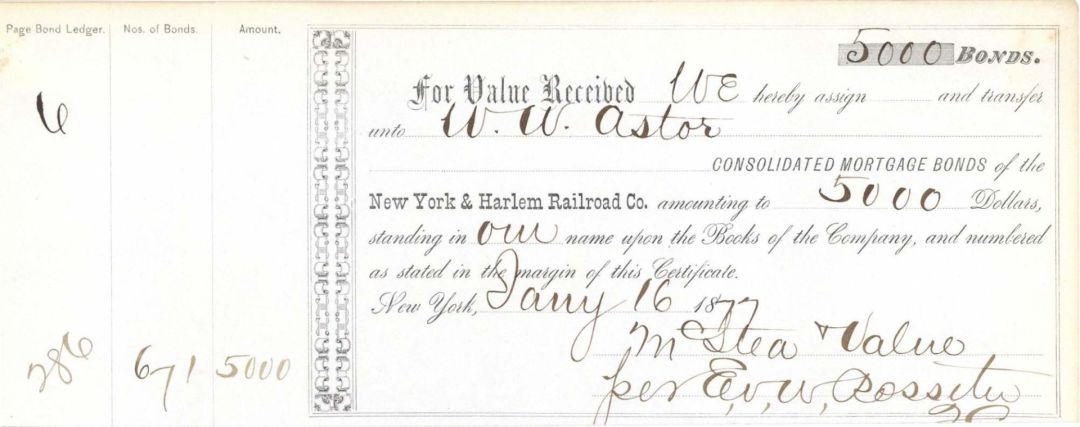 Page Bond Ledger. Nos. of Bonds. Amount.
6
286 671 5000
5000 BONDS.
For Value Received WE hereby assign and transfer
unto W. W. Astor
CONSOLIDATED MORTGAGE BONDS of the
New York & Harlem Railroad Co. amounting to 5000 Dollars,
standing in our name upon the Books of the Company, and numbered
as stated in the margin of this Certificate.
New York, Jany 16 1877
McStea & Value
per E. V. W. Rossiter